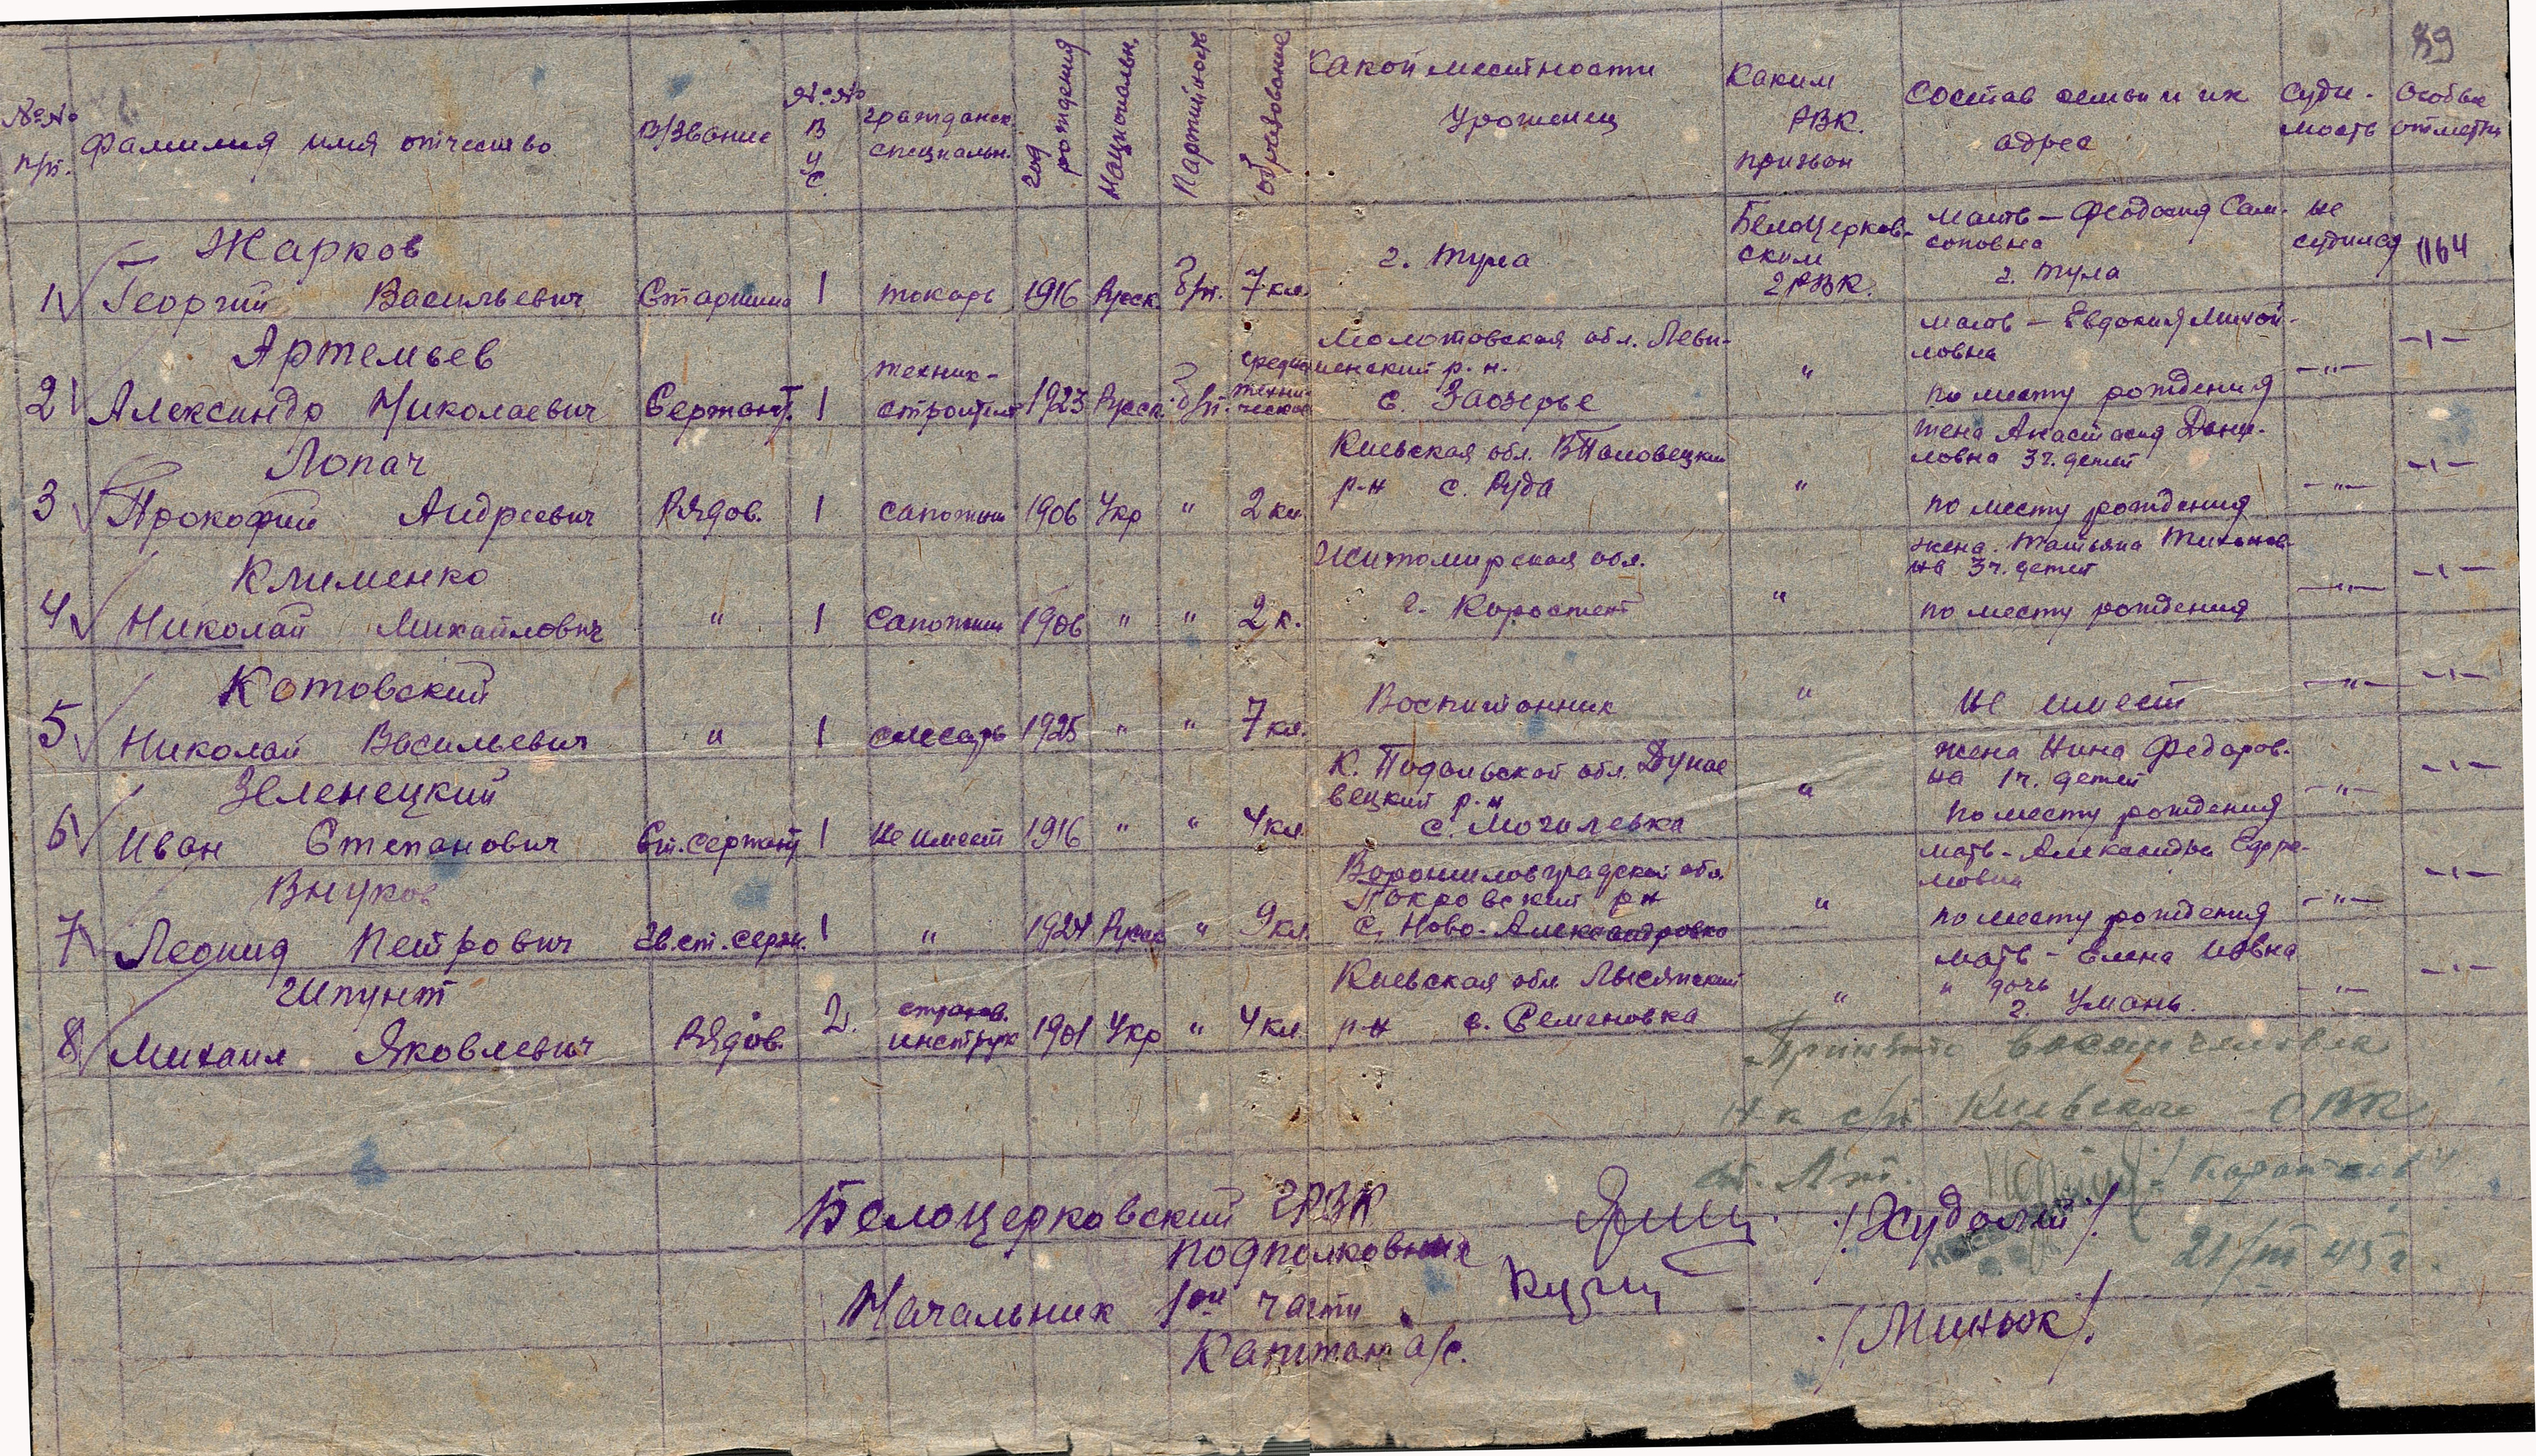 89
№№ п/п.
Фамилия имя отчество
В/Звание
№№ В У С.
гражданск. специальн.
год рождения
Национальн.
Партийность
Образование
Какой местности Уроженец
Каким РВК. призван
Состав семьи и их адрес
Суди-мость
Особые отметки
1 Жарков Георгий Васильевич Старшина 1 токарь 1916 Русск б/п. 7 кл. г. Тула Белоцерков-ским ГРВК. Мать – Феодосия Сам-соновна г. Тула не судился 1164
2 Артемьев Александр Николаевич Сержант. 1 техник-строитель 1923 Русск. б/п. средне техни-ческое Молотовская обл. р.н. с. Заозерье " мать – Евдокия Михай-ловна по месту рождения –"– –ı–
3 Лопач Прокофий Андреевич Рядов. 1 сапожник 1906 Укр " 2 кл. Киевская обл. р-н с. Руда " жена Анастасия Дани-ловна 3 ч. детей по месту рождения –"– –ı–
4 Клименко Николай Михайлович " 1 Сапожник 1906 " " 2 к. Житомирская обл. г. Коростень " жена. Татьяна Тихонов-на 3 ч. детей по месту рождения –"– –ı–
5 Котовский Николай Васильевич " 1 слесарь 1925 " " 7 кл. Воспитанник " Не имеет –"– –ı–
6 Зеленецкий Иван Степанович Ст. сержант 1 Не имеет 1916 " " 4 кл. К. Подольской обл. Дунае вецкий р.н с. Могилевка " жена Нина Федоров-на 1 ч. детей по месту рождения –"– –ı–
7 Внуков Леонид Петрович Гв. ст. серж. 1 " 1924 Русск " 9 кл. Ворошиловградской обл. Покровский рн с. Ново-Александровка " мать – Александра Ефре-мовна по месту рождения –"– –ı–
8 Шпунт Михаил Яковлевич Рядов. 2. страхов. инструк 1901 Укр " 4 кл. Киевская обл Лысянский р-н с. Семеновка " мать – Елена Иовна " дочь г. Умань. –"– –ı–
Принято восемь человек
Н-к с/п Киевского ОВК
ст. Лт.
21/III 45 г.
Белоцерковский ГРВК
подполковник /Худолий/
Начальник 1ой части
Капитан а/с. /Миньок/